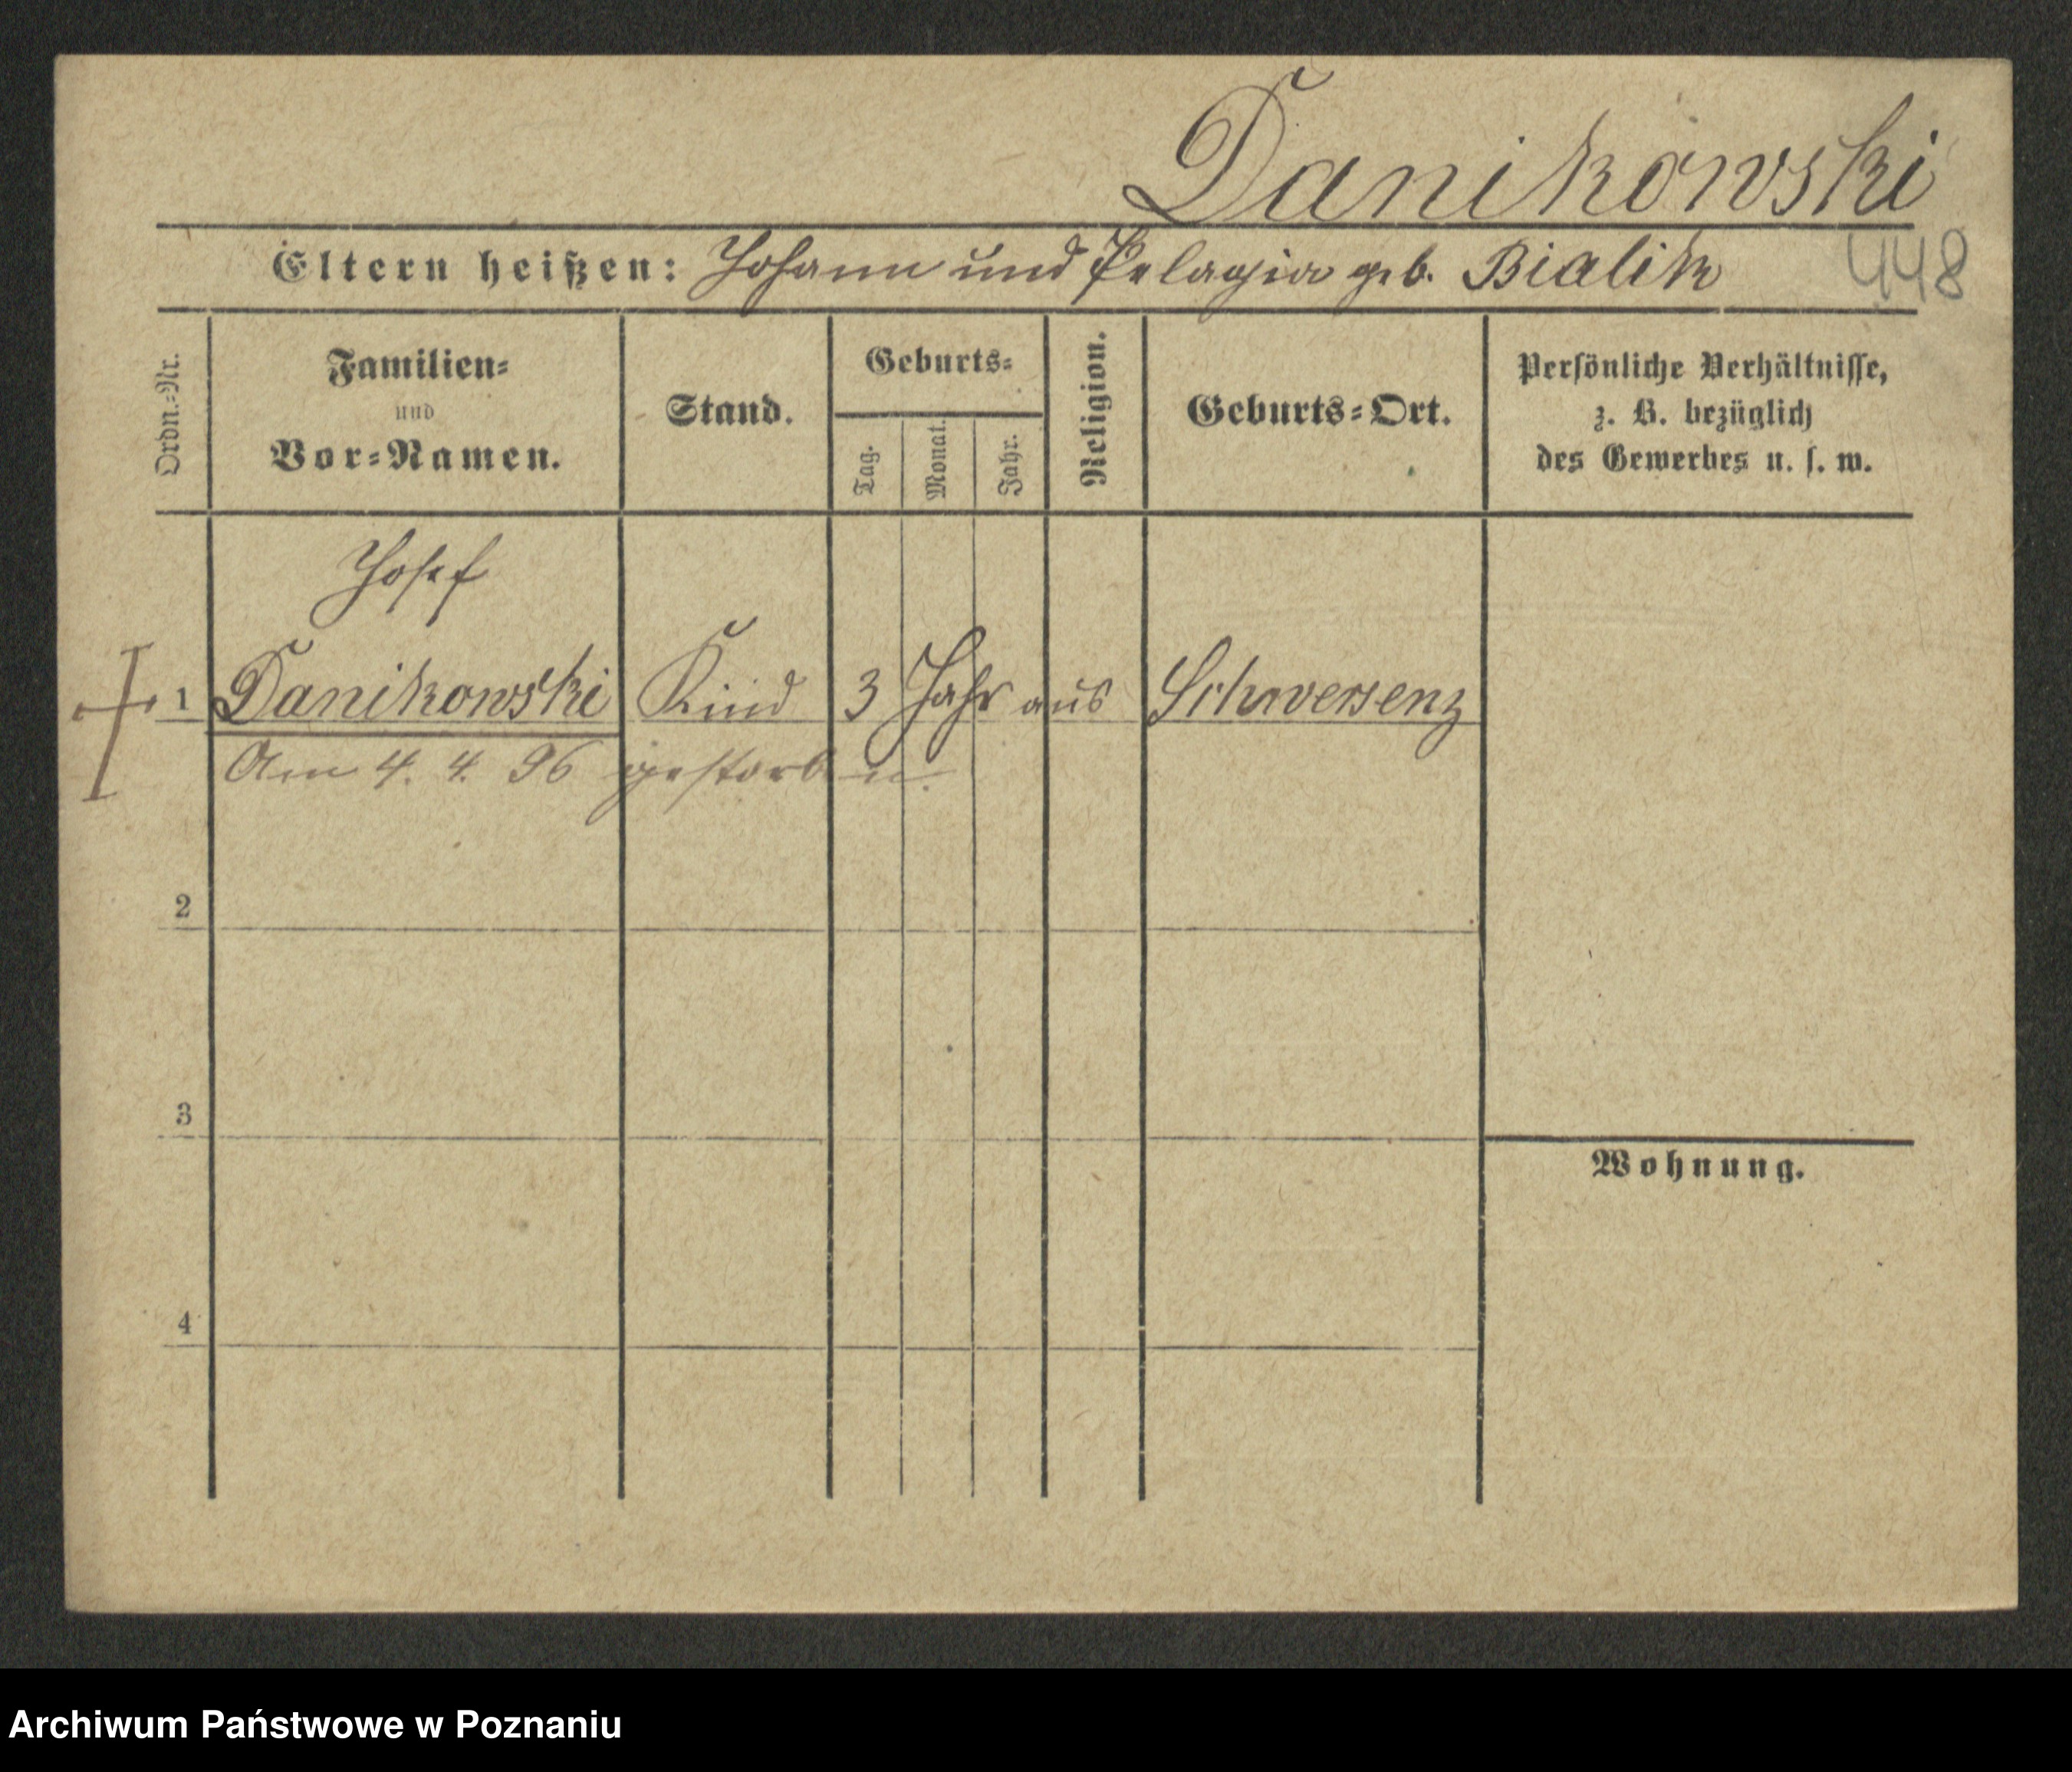 Danikowski
Eltern heißen: Johann und Pelagia geb. Bialik
448
Ordn.=Nr.
Familien=
und
Vor=Namen.
Stand.
Geburts=
Tag.
Monat.
Jahr.
Religion.
Geburts=Ort.
Persönliche Verhältnisse,
z. B. bezüglich
des Gewerbes u. s. w.
Josef
1 Danikowski Kind 3 Jahr aus Schwersenz
Am 4. 4. 96 gestorben.
2
3
Wohnung.
4
Archiwum Państwowe w Poznaniu